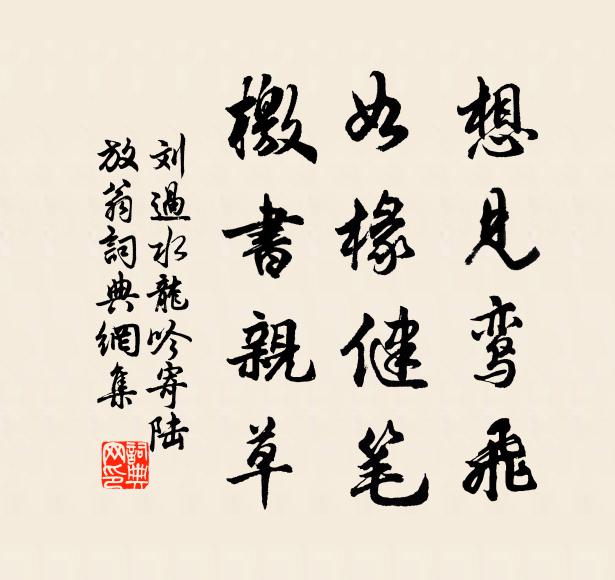 想见鸾飞
如椽健笔
檄書親草
刘過水龍吟寄陆
放翁詞典網集
詞典网印